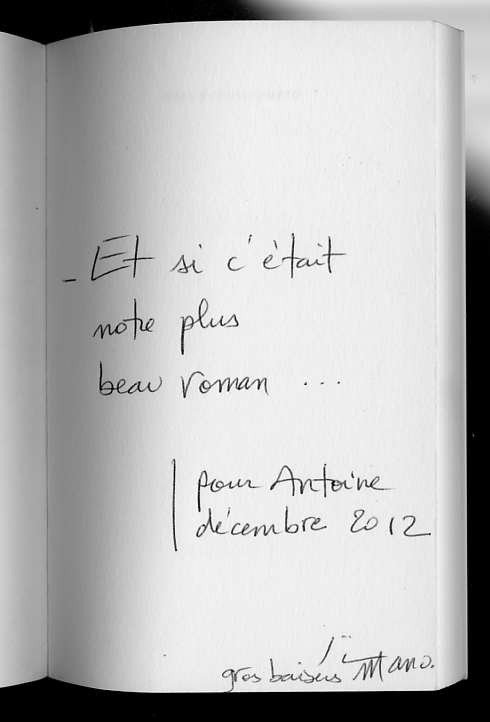 - Et si c'était
notre plus
beau roman ...
pour Antoine
décembre 2012
gros baisers Mano.